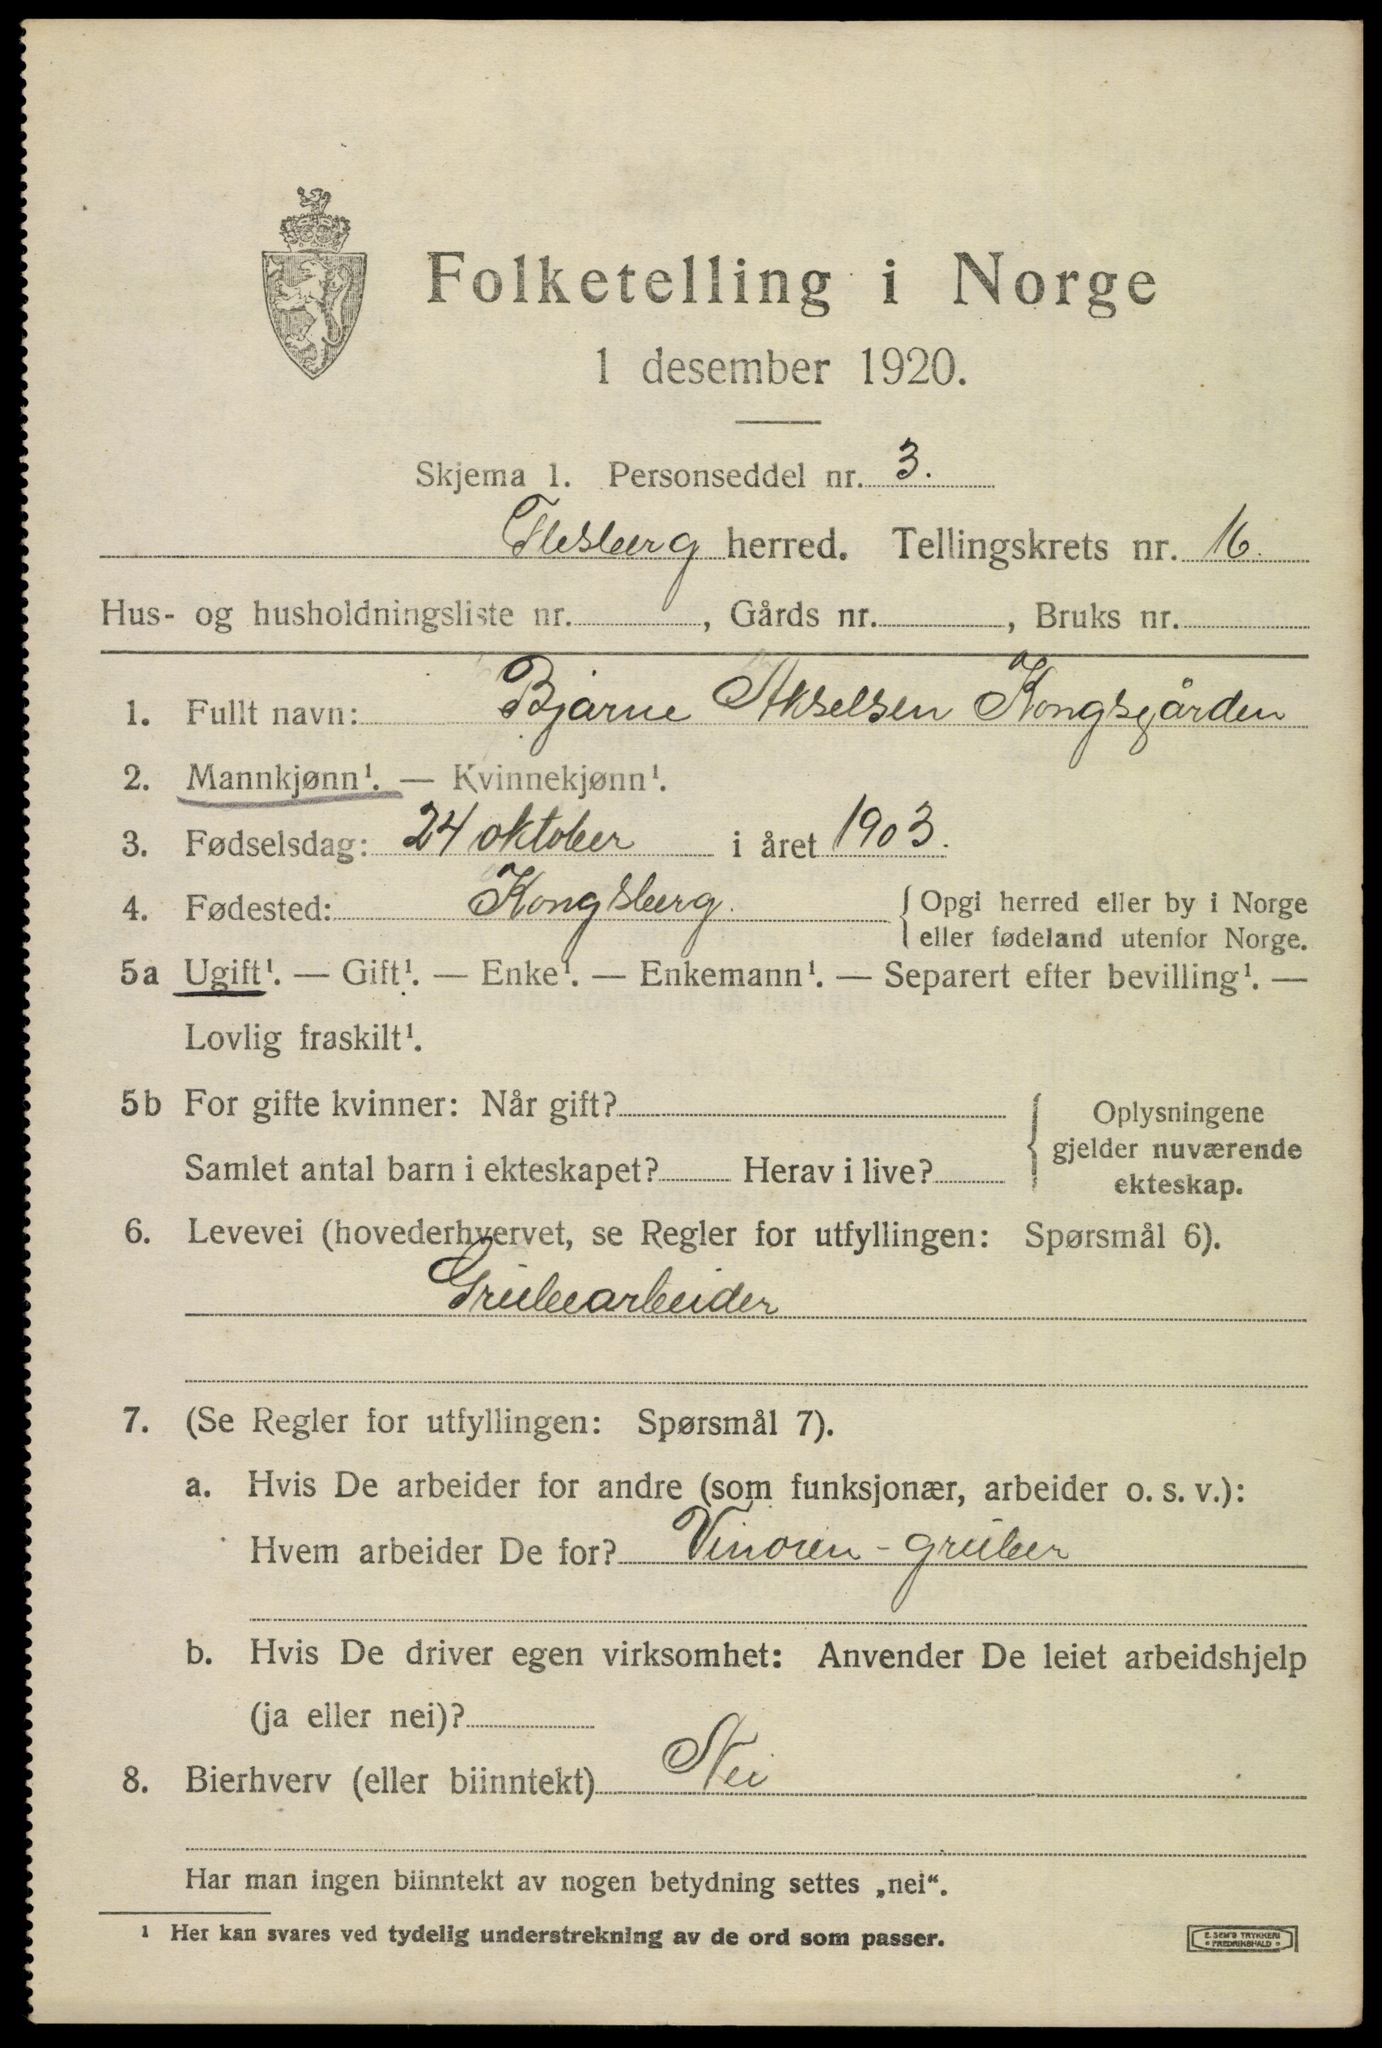 Folketelling i Norge
1 desember 1920.
Skjema 1. Personseddel nr. 3.
Flesberg herred. Tellingskrets nr. 16.
Hus- og husholdningsliste nr. , Gårds nr. , Bruks nr.
1. Fullt navn: Bjarne Akselsen Kongsgården
2. Mannkjønn¹. — Kvinnekjønn¹.
3. Fødselsdag: 24 oktober i året 1903.
4. Fødested: Kongsberg. { Opgi herred eller by i Norge
eller fødeland utenfor Norge.
5a Ugift¹. — Gift¹. — Enke¹. — Enkemann¹. — Separert efter bevilling¹. —
Lovlig fraskilt¹.
5b For gifte kvinner: Når gift?
Samlet antal barn i ekteskapet? Herav i live?
{ Oplysningene
gjelder nuværende
ekteskap.
6. Levevei (hovederhvervet, se Regler for utfyllingen: Spørsmål 6).
Grubearbeider
7. (Se Regler for utfyllingen: Spørsmål 7).
a. Hvis De arbeider for andre (som funksjonær, arbeider o. s. v.):
Hvem arbeider De for? Vinoren-gruber
b. Hvis De driver egen virksomhet: Anvender De leiet arbeidshjelp
(ja eller nei)?
8. Bierhverv (eller biinntekt) Nei
Har man ingen biinntekt av nogen betydning settes „nei“.
¹ Her kan svares ved tydelig understrekning av de ord som passer.
E. SEM'S TRYKKERI
* FREDRIKSHALD *